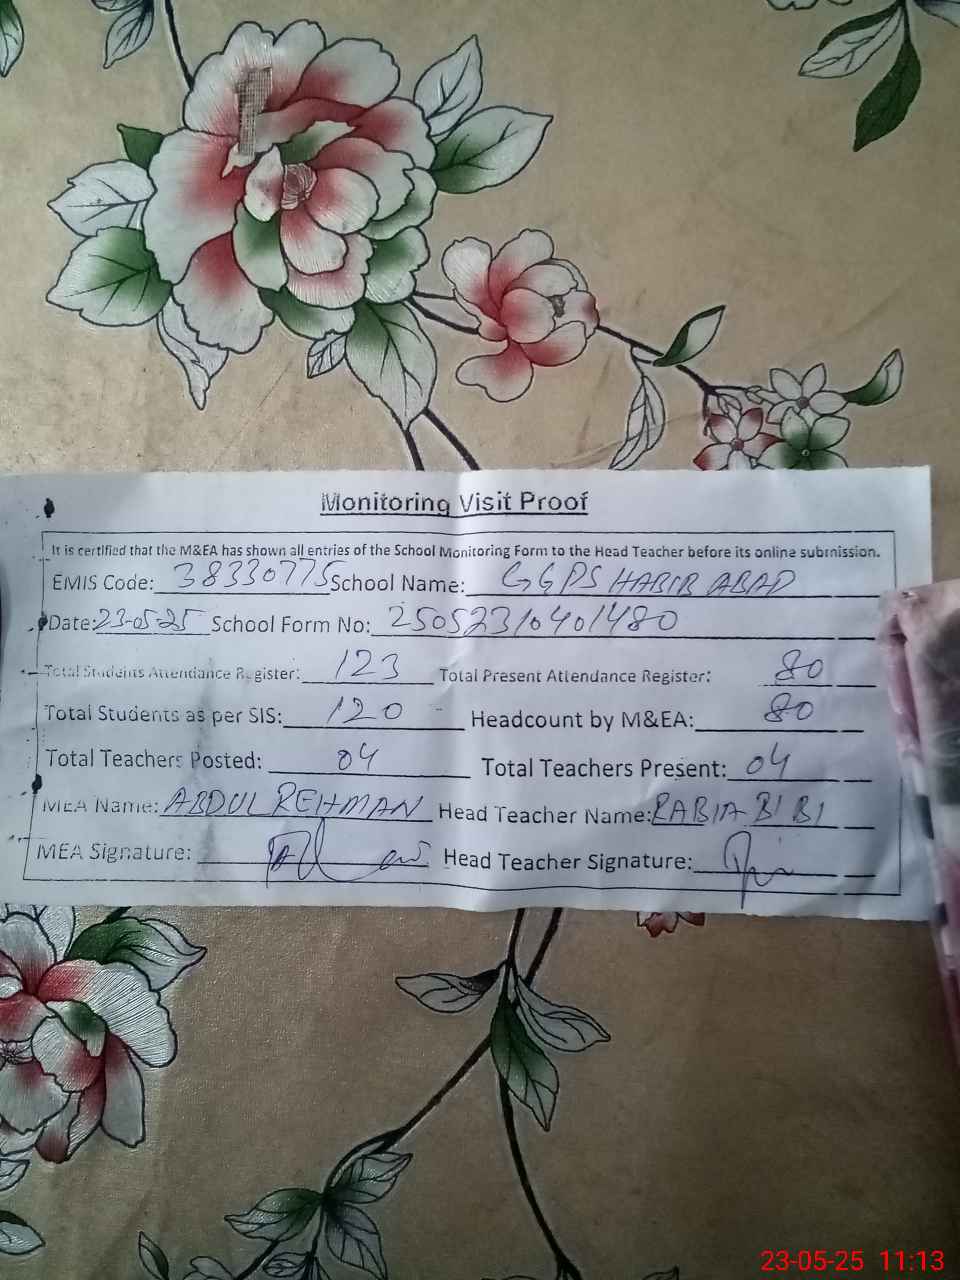 Monitoring Visit Proof
It is certified that the M&EA has shown all entries of the School Monitoring Form to the Head Teacher before its online submission.
EMIS Code: 38330775 School Name: GGPS HABIB ABAD
Date: 23-05-25 School Form No: 25052310401480
Total Students Attendance Register: 123 Total Present Attendance Register: 80
Total Students as per SIS: 120 Headcount by M&EA: 80
Total Teachers Posted: 04 Total Teachers Present: 04
MEA Name: ABDUL REHMAN Head Teacher Name: RABIA BI BI
MEA Signature: Head Teacher Signature:
23-05-25 11:13